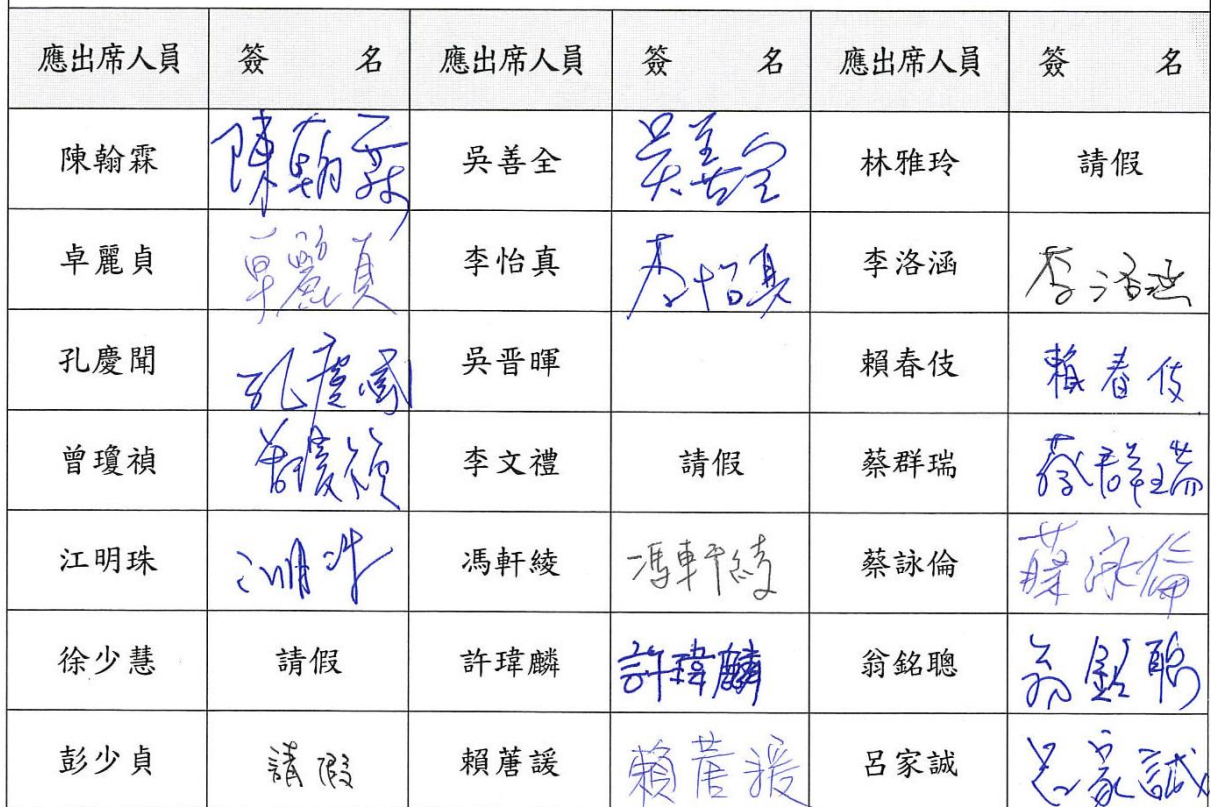 應出席人員 簽 名 應出席人員 簽 名 應出席人員 簽 名
陳翰霖 陳翰霖 吳善全 吳善全 林雅玲 請假
卓麗貞 卓麗貞 李怡真 李怡真 李洛涵 李洛涵
孔慶聞 孔慶聞 吳晋暉 賴春伎 賴春伎
曾瓊禎 曾瓊禎 李文禮 請假 蔡群瑞 蔡群瑞
江明珠 江明珠 馮軒綾 馮軒綾 蔡詠倫 蔡詠倫
徐少慧 請假 許瑋麟 許瑋麟 翁銘聰 翁銘聰
彭少貞 請假 賴蓎諼 賴蓎諼 呂家誠 呂家誠